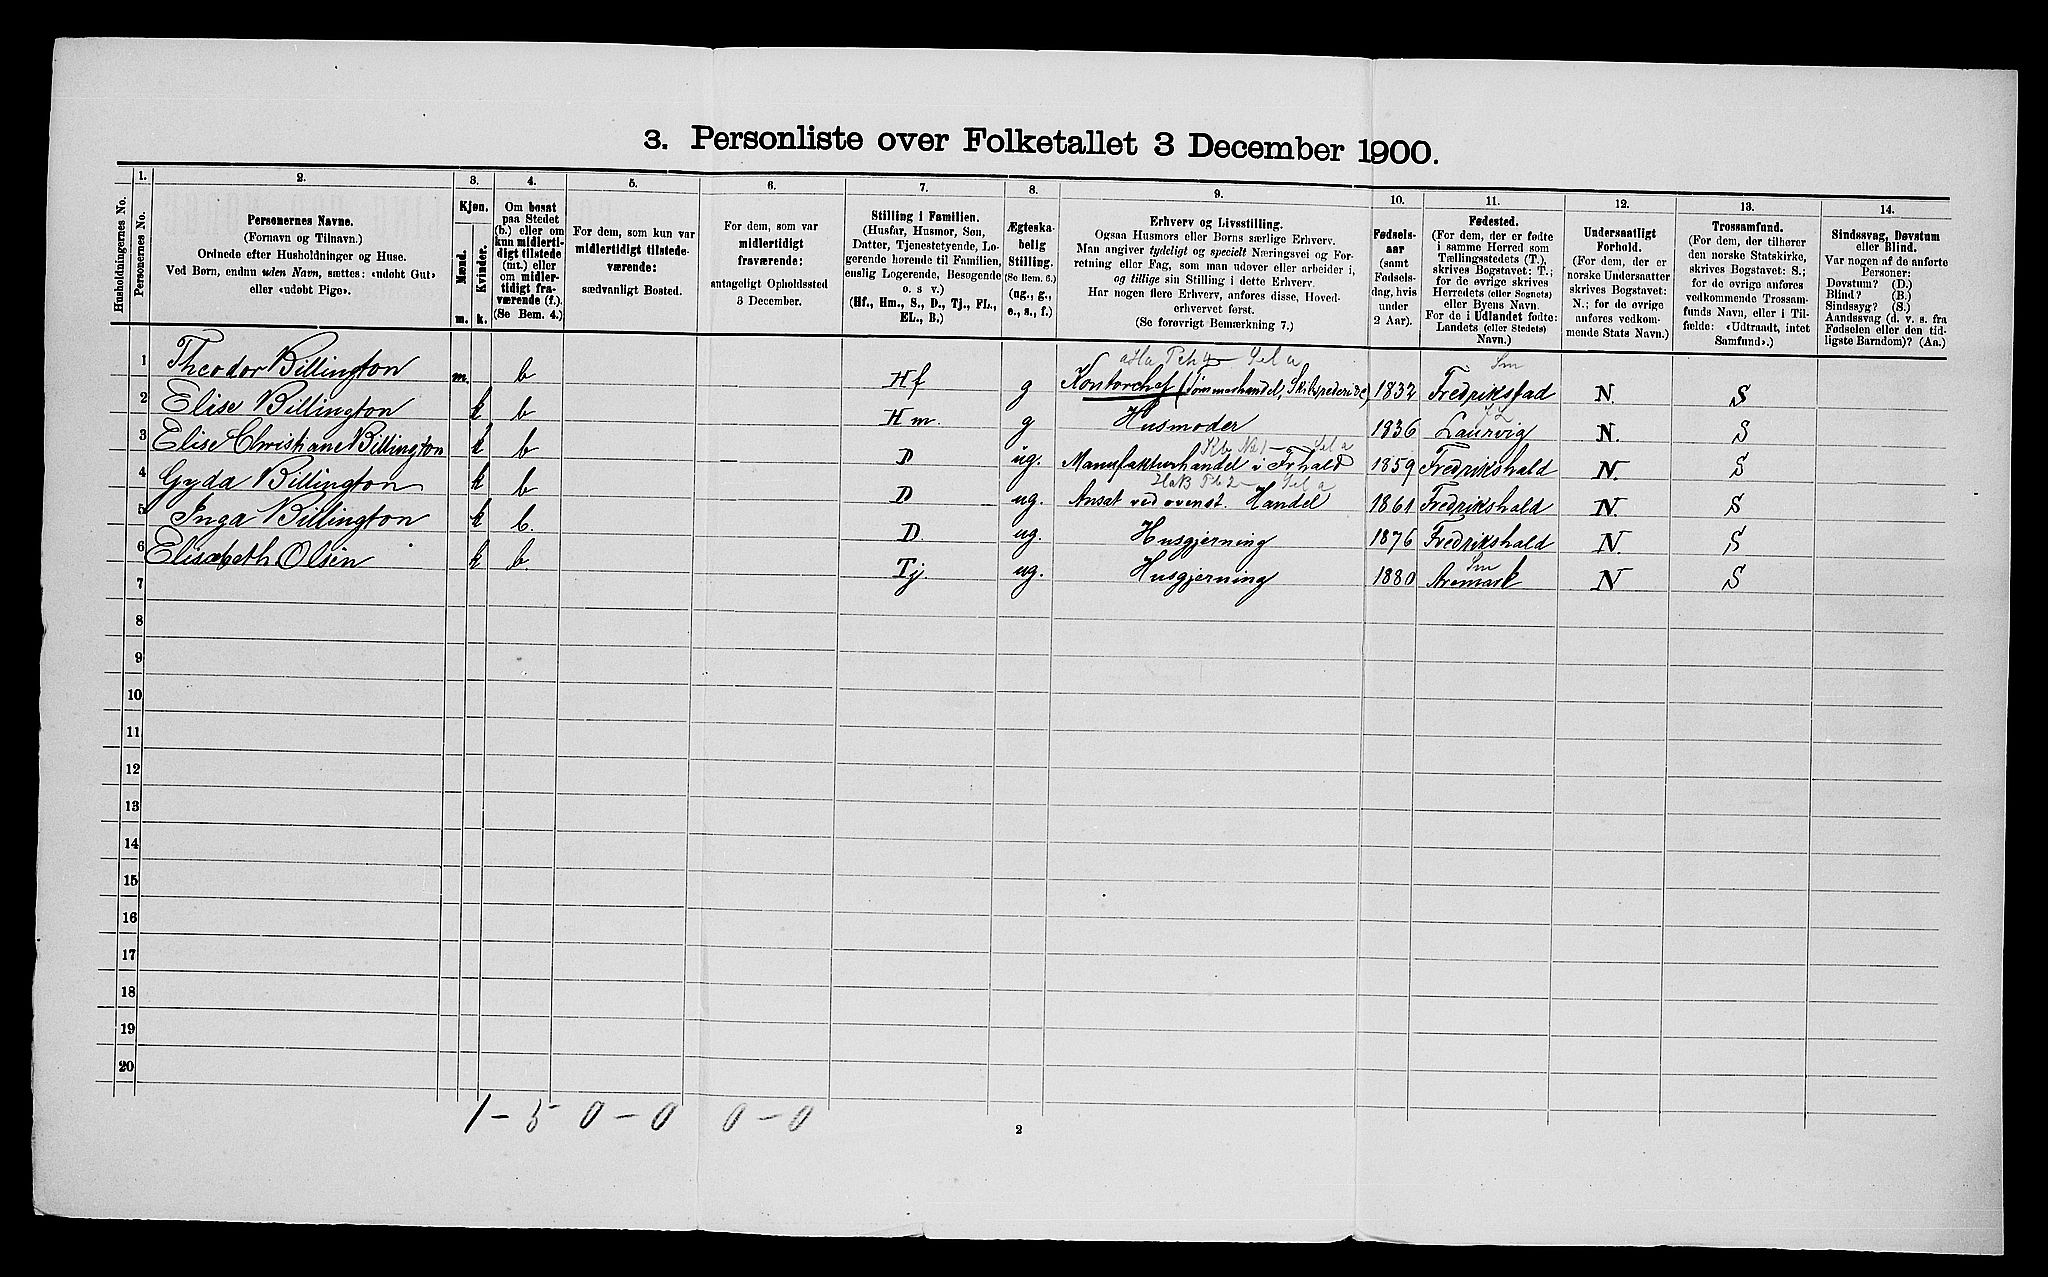 3. Personliste over Folketallet 3 December 1900.
Husholdningernes No.
1. Personernes No.
2. Personernes Navne.
(Fornavn og Tilnavn.)
Ordnede efter Husholdninger og Huse.
Ved Børn, endnu uden Navn, sættes: «udøbt Gut»
eller «udøbt Pige».
3. Kjøn.
Mænd. m.
Kvinder. k.
4. Om bosat
paa Stedet
(b.) eller om
kun midlerti-
digt tilstede
(mt.) eller
om midler-
tidigt fra-
værende (f.).
(Se Bem. 4.)
5. For dem, som kun var
midlertidigt tilstede-
værende:
sædvanligt Bosted.
6. For dem, som var
midlertidigt
fraværende:
antageligt Opholdssted
3 December.
7. Stilling i Familien.
(Husfar, Husmor, Søn,
Datter, Tjenestetyende, Lo-
gerende hørende til Familien,
enslig Logerende, Besøgende
o. s v.)
(Hf., Hm., S., D., Tj., FL.,
EL., B.)
8. Ægteska-
belig
Stilling.
(Se Bem. 6.)
(ug., g.,
e., s., f.)
9. Erhverv og Livsstilling.
Ogsaa Husmors eller Børns særlige Erhverv.
Man angiver tydeligt og specielt Næringsvei og For-
retning eller Fag, som man udover eller arbeider i,
og tillige sin Stilling i dette Erhverv.
Har nogen flere Erhverv, anføres disse, Hoved-
erhvervet først.
(Se forøvrigt Bemærkning 7.)
10. Fødsels-
aar
(samt
Fødsels-
dag, hvis
under
2 Aar).
11. Fødested.
(For dem, der er fødte
i samme Herred som
Tællingsstedets (T.),
skrives Bogstavet: T.;
for de øvrige skrives
Herredets (eller Sognets)
eller Byens Navn.
For de i Udlandet fødte:
Landets (eller Stedets)
Navn.)
12. Undersaatligt
Forhold.
(For dem, der er
norske Undersaatter
skrives Bogstavet:
N.; for de øvrige
anføres vedkom-
mende Stats Navn.)
13. Trossamfund.
(For dem, der tilhører
den norske Statskirke,
skrives Bogstavet: S.;
for de øvrige anføres
vedkommende Trossam-
funds Navn, eller i Til-
fælde: «Udtraadt, intet
Samfund».)
14. Sindssvag, Døvstum
eller Blind.
Var nogen af de anførte
Personer:
Døvstum? (D.)
Blind? (B.)
Sindssyg? (S.)
Aandssvag (d. v. s. fra
Fødselen eller den tid-
ligste Barndom)? (Aa.)
1 Theodor Billington m. b Hf g Kontorchef (Tømmerhandel, Skibsrederi etc) 1832 Fredriksstad N. S
2 Elise Billington k b Hm. g Husmoder 1836 Laurvig N. S
3 Elise Christiane Billington k b D ug. Manufakturhandel i Frhald 1859 Fredrikshald N. S
4 Gyda Billington k b D ug. Ansat ved ovenst. Handel 1861 Fredrikshald N. S
5 Inga Billington k b. D ug. Husgjerning 1876 Fredrikshald N. S
6 Elisabeth Olsen k b. Tj. ug. Husgjerning 1880 Aremark N S
7
8
9
10
11
12
13
14
15
16
17
18
19
20
1 - 5 0 - 0 0 - 0
2